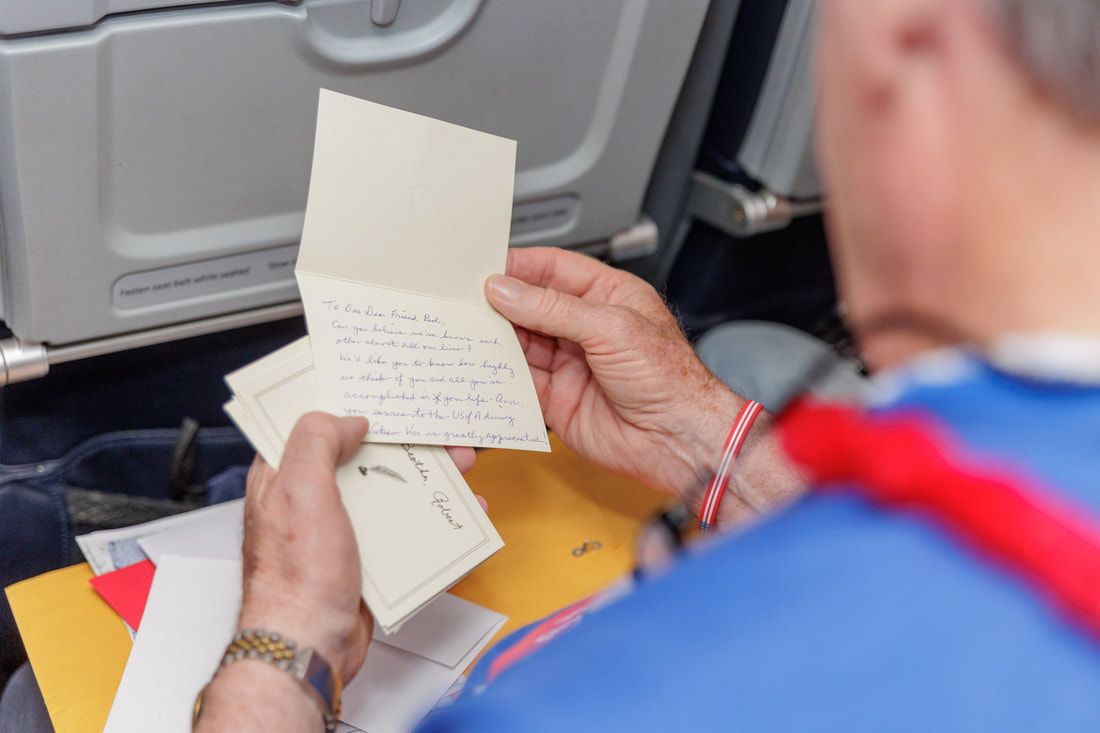 Fasten seat belt while seated
To Our Dear Friend Bert,
Can you believe we've known each
other almost all our lives?
We'd like you to know how highly
we think of you and all you've
accomplished in your life. And,
your service to the US of A during
War is greatly appreciated.
Robert